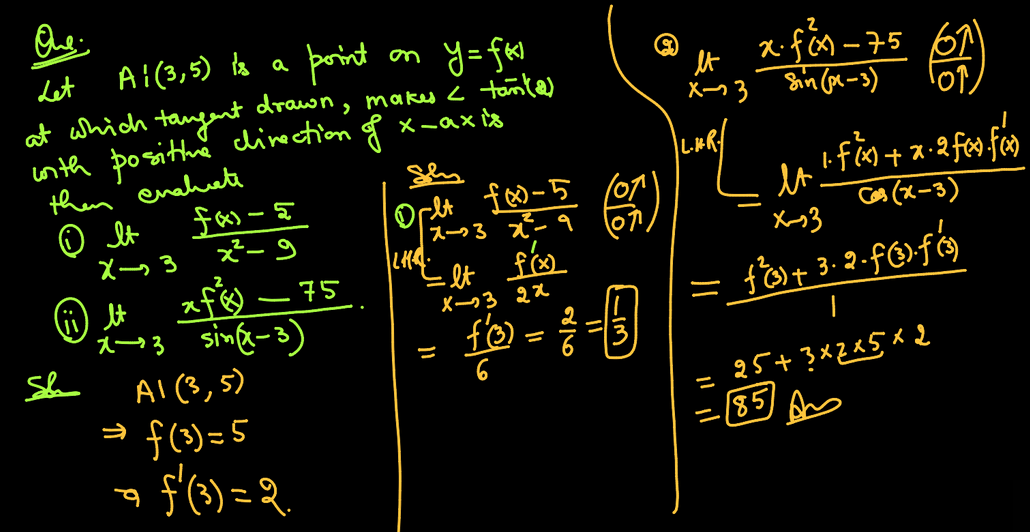 Que.
Let A|(3,5) is a point on y=f(x)
at which tangent drawn, makes < tan⁻(2)
with positive direction of x-axis
then evaluate
(i) lt x→3 (f(x) - 5)/(x² - 9)
(ii) lt x→3 (xf²(x) - 75)/(sin(x-3)).
Sln A|(3,5)
⇒ f(3)=5
⇒ f'(3)=2.
Sln
(i) lt x→3 (f(x)-5)/(x²-9) (0↑/0↑)
L.H.R. = lt x→3 f'(x)/2x
= f'(3)/6 = 2/6 = 1/3
(2) lt x→3 (x·f²(x)-75)/(sin(x-3)) (0↑/0↑)
L.H.R. = lt x→3 (1·f²(x)+x·2f(x)·f'(x))/(cos(x-3))
= (f²(3)+3·2·f(3)·f'(3))/1
= 25+3×2×5×2
= 85 Ans